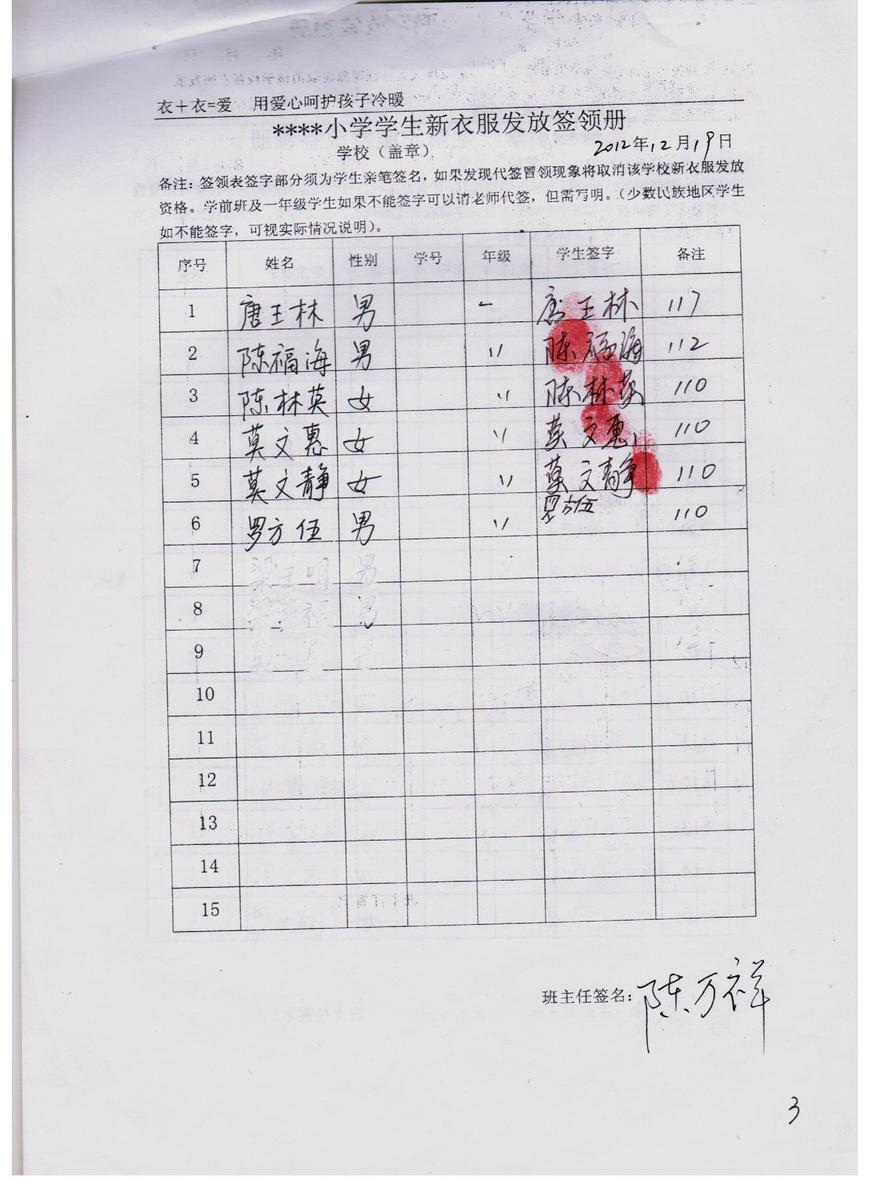 衣＋衣=爱 用爱心呵护孩子冷暖
****小学学生新衣服发放签领册
学校（盖章） 2012年12月19日
备注：签领表签字部分须为学生亲笔签名，如果发现代签冒领现象将取消该学校新衣服发放
资格。学前班及一年级学生如果不能签字可以请老师代签，但需写明。（少数民族地区学生
如不能签字，可视实际情况说明）。
序号 姓名 性别 学号 年级 学生签字 备注
1 唐王林 男 一 唐王林 117
2 陈福海 男 〃 陈福海 112
3 陈林英 女 〃 陈林英 110
4 莫文惠 女 〃 莫文惠 110
5 莫文静 女 〃 莫文静 110
6 罗方伍 男 〃 罗方伍 110
7
8
9
10
11
12
13
14
15
班主任签名：陈万祥
3